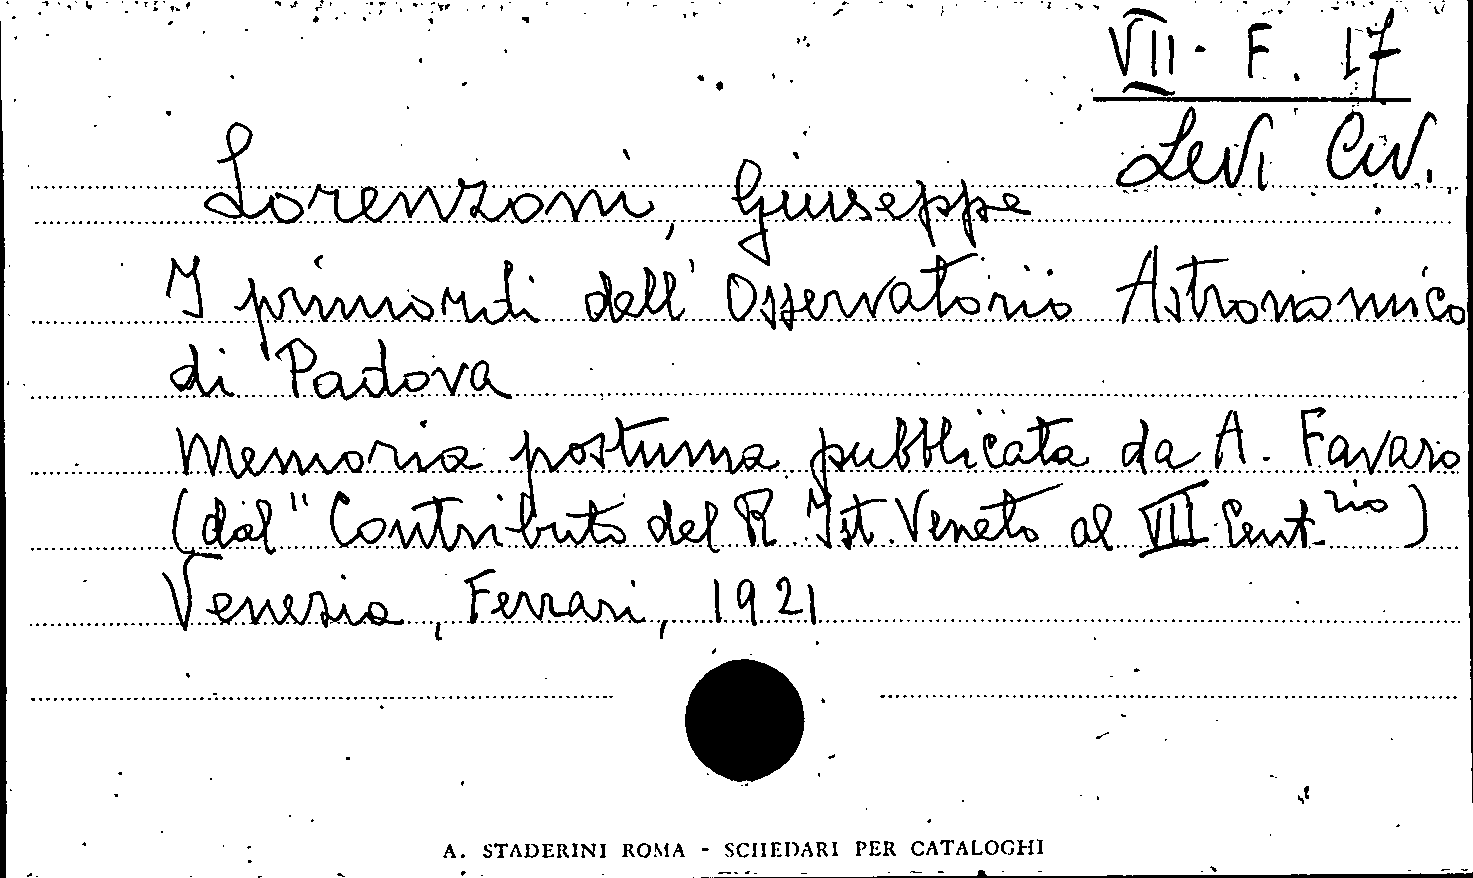 VII. F. 17
Levi Civ.
Lorenzoni, Giuseppe
I primordi dell'Osservatorio Astronomico
di Padova
Memoria postuma pubblicata da A. Favaro
(dal "Contributo del R Ist. Veneto al VII Cent.rio)
Venezia, Ferrari, 1921
A. STADERINI ROMA - SCHEDARI PER CATALOGHI